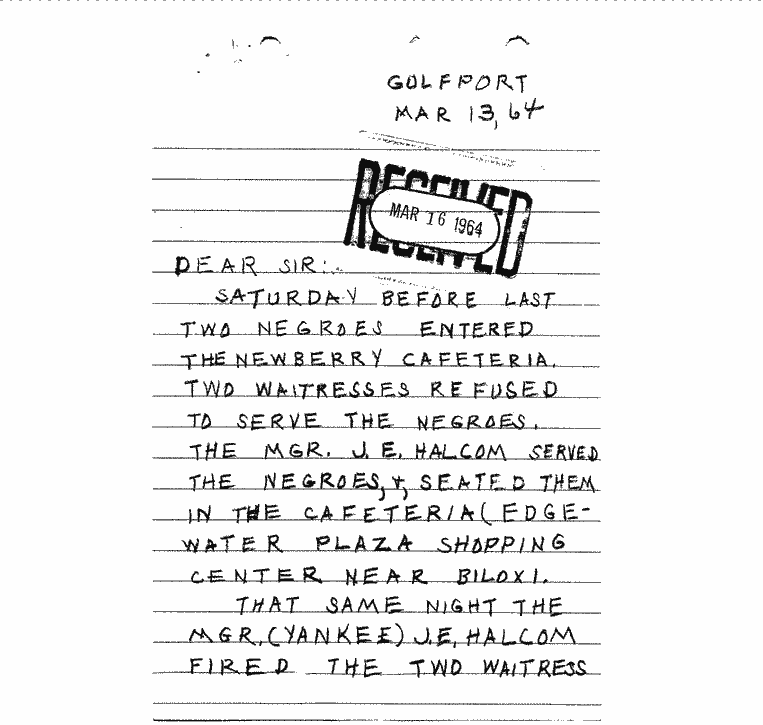 GULFPORT
MAR 13, 64
RECEIVED
MAR 16 1964
RECEIVED
DEAR SIR:
SATURDAY BEFORE LAST
TWO NEGROES ENTERED
THE NEWBERRY CAFETERIA.
TWO WAITRESSES REFUSED
TO SERVE THE NEGROES.
THE MGR. J. E. HALCOM SERVED
THE NEGROES, &, SEATED THEM
IN THE CAFETERIA (EDGE-
WATER PLAZA SHOPPING
CENTER NEAR BILOXI.
THAT SAME NIGHT THE
MGR. (YANKEE) J.E. HALCOM
FIRED THE TWO WAITRESS